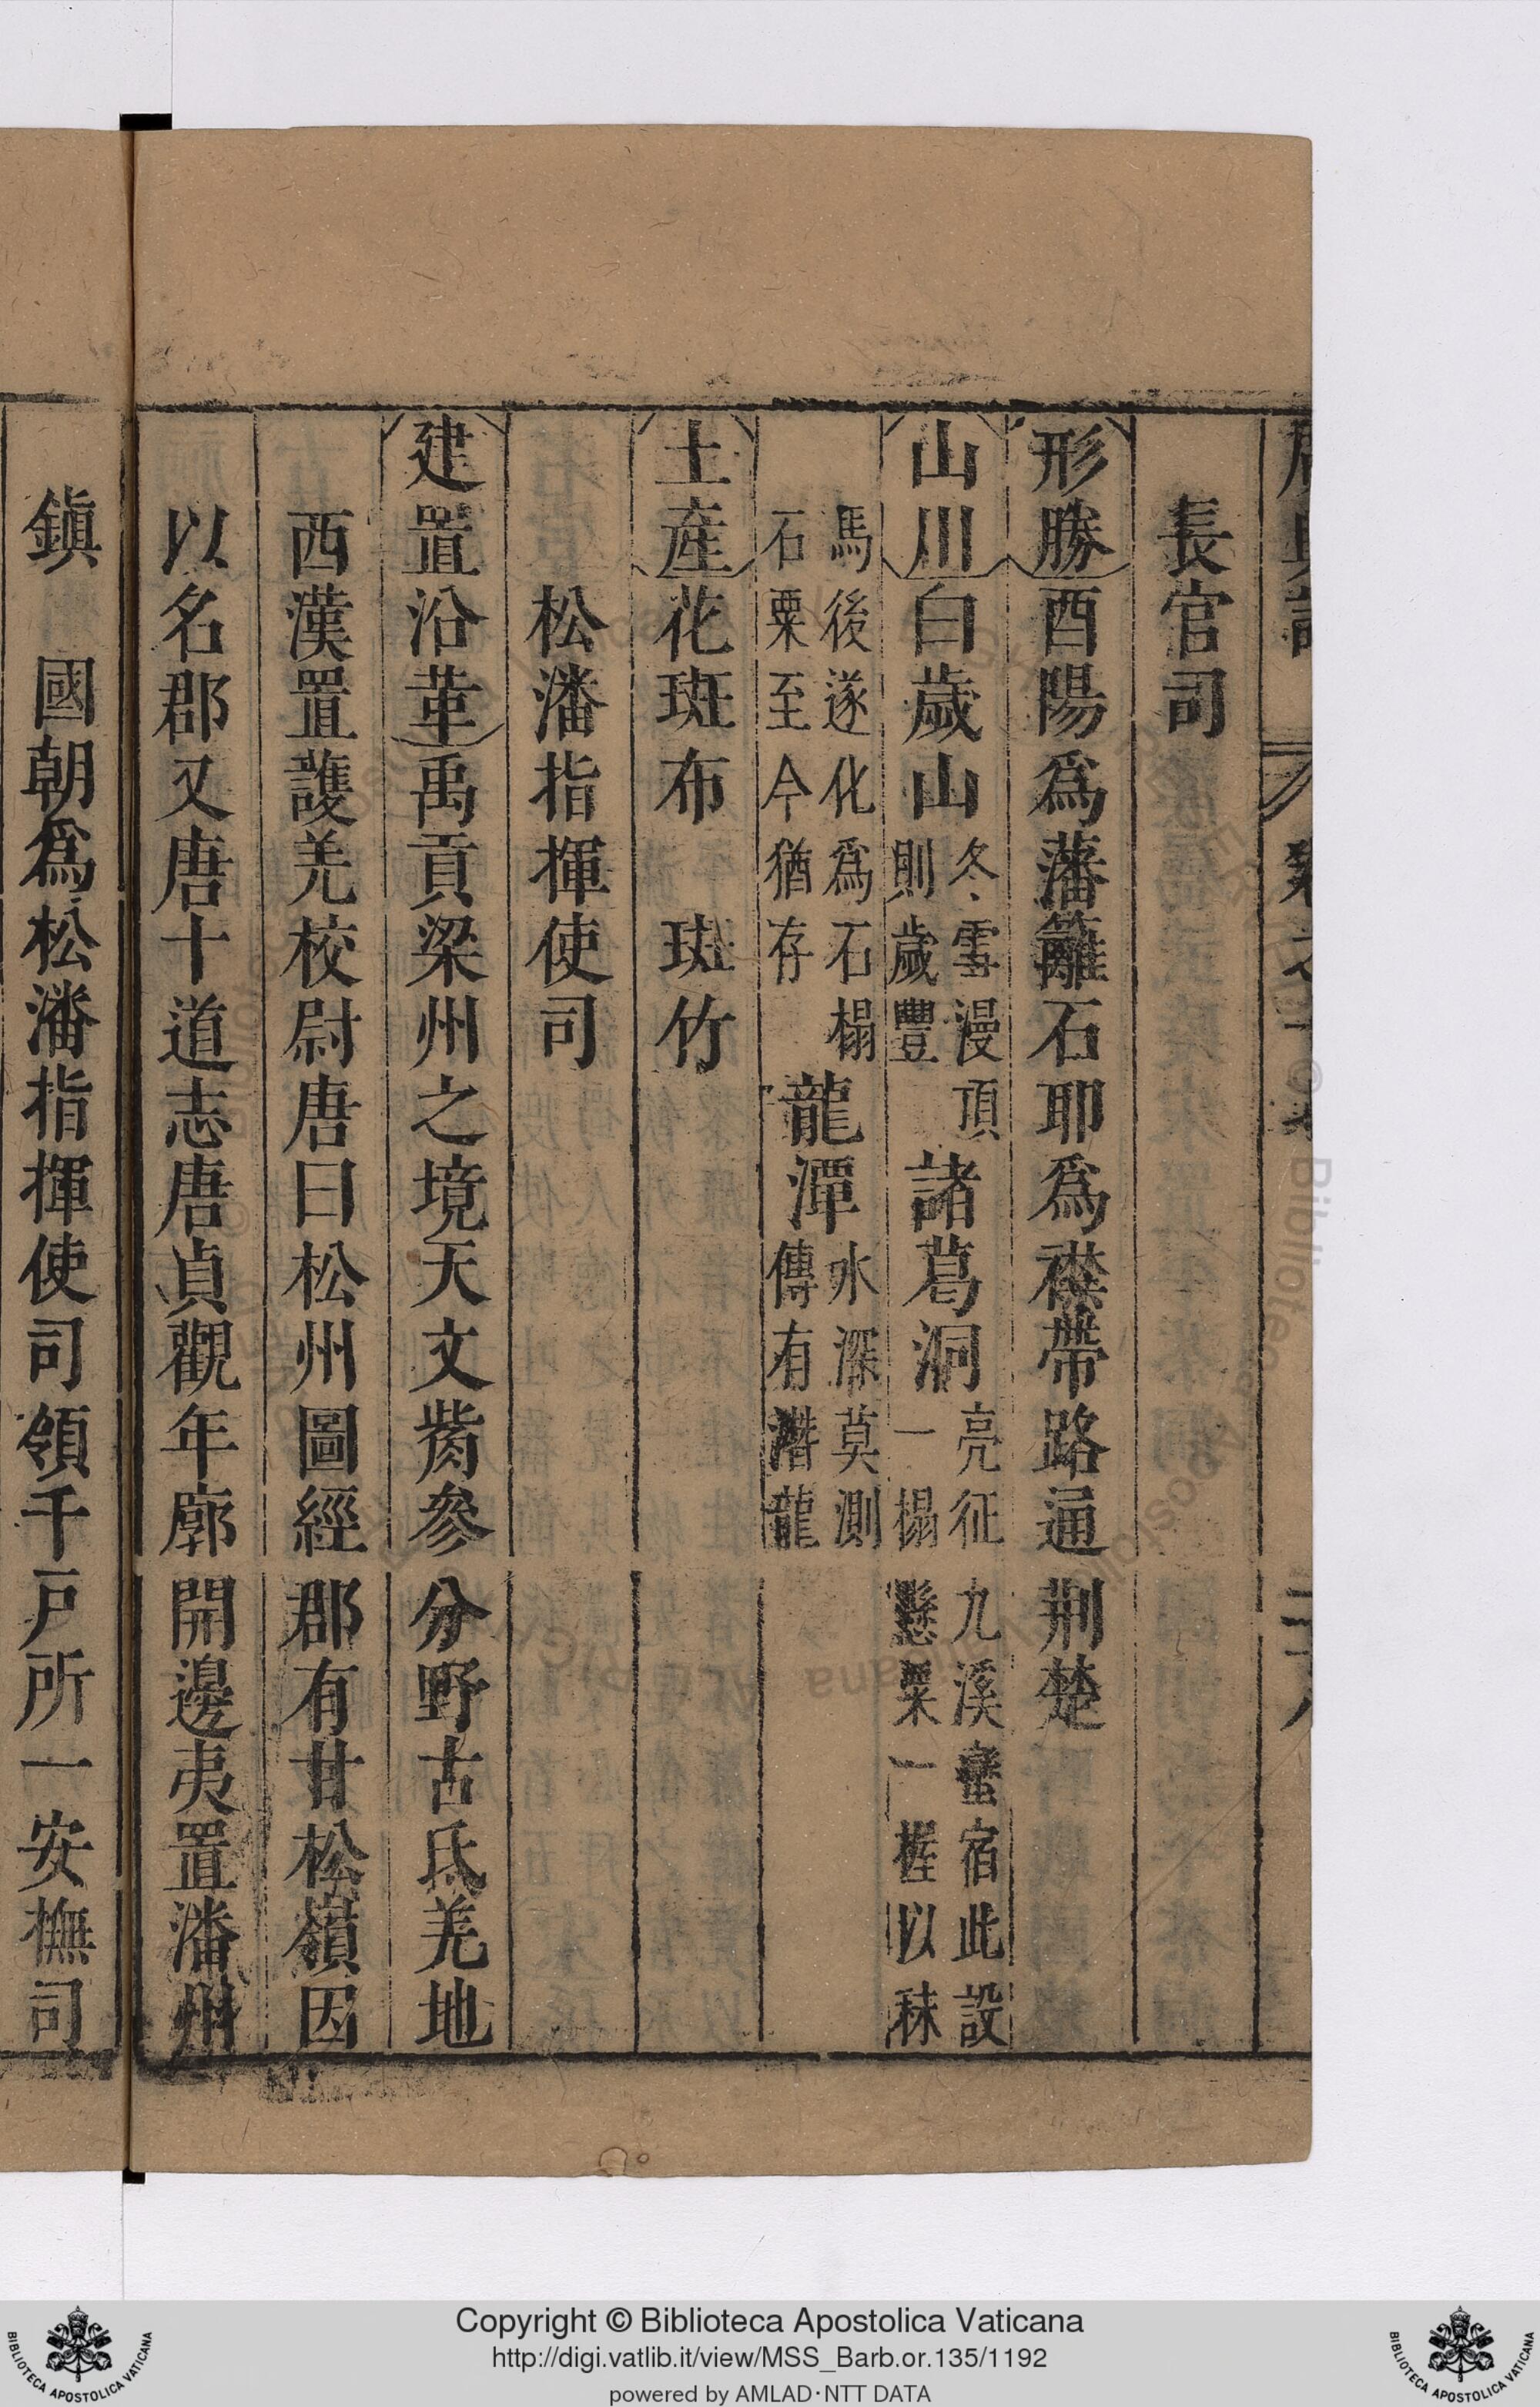 長官司
形勝酉陽爲藩籬石耶爲襟帶路通荆楚
山川白歲山冬雪漫頂則歲豐諸葛洞亮征九溪蠻宿此設一榻懸粟一握以秣
馬後遂化爲石榻石粟至今猶存龍潭水深莫測傳有潛龍
土產花斑布 斑竹
松潘指揮使司
建置沿革禹貢梁州之境天文觜參分野古氐羌地
西漢置護羌校尉唐曰松州圖經郡有甘松嶺因
以名郡又唐十道志唐貞觀年廓開邊夷置潘州
鎮 國朝爲松潘指揮使司領千戶所一安撫司
Copyright © Biblioteca Apostolica Vaticana
http://digi.vatlib.it/view/MSS_Barb.or.135/1192
powered by AMLAD·NTT DATA
BIBLIOTECA APOSTOLICA VATICANA
BIBLIOTECA APOSTOLICA VATICANA